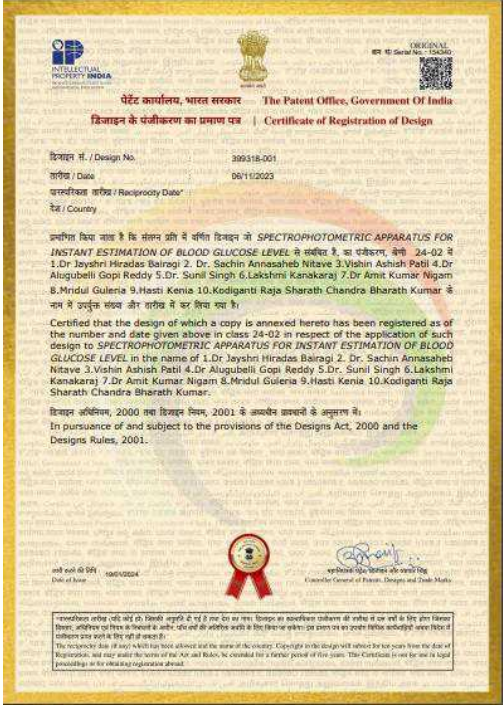 ORIGINAL
क्रम सं/ Serial No. : 154340
INTELLECTUAL
PROPERTY INDIA
पेटेंट कार्यालय, भारत सरकार The Patent Office, Government Of India
डिजाइन के पंजीकरण का प्रमाण पत्र | Certificate of Registration of Design
डिजाइन सं. / Design No. : 399318-001
तारीख / Date : 06/11/2023
पारस्परिकता तारीख / Reciprocity Date* :
देश / Country :
प्रमाणित किया जाता है कि संलग्न प्रति में वर्णित डिजाइन जो SPECTROPHOTOMETRIC APPARATUS FOR
INSTANT ESTIMATION OF BLOOD GLUCOSE LEVEL से संबंधित है, का पंजीकरण, श्रेणी 24-02 में
1.Dr Jayshri Hiradas Bairagi 2. Dr. Sachin Annasaheb Nitave 3.Vishin Ashish Patil 4.Dr
Alugubelli Gopi Reddy 5.Dr. Sunil Singh 6.Lakshmi Kanakaraj 7.Dr Amit Kumar Nigam
8.Mridul Guleria 9.Hasti Kenia 10.Kodiganti Raja Sharath Chandra Bharath Kumar के
नाम में उपर्युक्त संख्या और तारीख में कर लिया गया है।
Certified that the design of which a copy is annexed hereto has been registered as of
the number and date given above in class 24-02 in respect of the application of such
design to SPECTROPHOTOMETRIC APPARATUS FOR INSTANT ESTIMATION OF BLOOD
GLUCOSE LEVEL in the name of 1.Dr Jayshri Hiradas Bairagi 2. Dr. Sachin Annasaheb
Nitave 3.Vishin Ashish Patil 4.Dr Alugubelli Gopi Reddy 5.Dr. Sunil Singh 6.Lakshmi
Kanakaraj 7.Dr Amit Kumar Nigam 8.Mridul Guleria 9.Hasti Kenia 10.Kodiganti Raja
Sharath Chandra Bharath Kumar.
डिजाइन अधिनियम, 2000 तथा डिजाइन नियम, 2001 के अध्यधीन प्रावधानों के अनुसरण में।
In pursuance of and subject to the provisions of the Designs Act, 2000 and the
Designs Rules, 2001.
जारी करने की तिथि : 19/01/2024
Date of Issue
महानियंत्रक पेटेंट, डिजाइन और व्यापार चिह्न
Controller General of Patents, Designs and Trade Marks
The reciprocity date (if any) which has been allowed and the name of the country. Copyright in the design will subsist for ten years from the date of
Registration, and may under the terms of the Act and Rules, be extended for a further period of five years. This Certificate is not for use in legal
proceedings or for obtaining registration abroad.